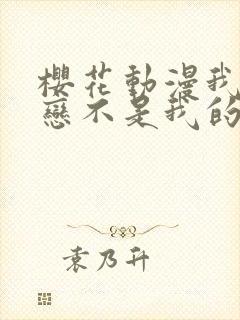 櫻花動漫我
戀不是我的
袁乃升